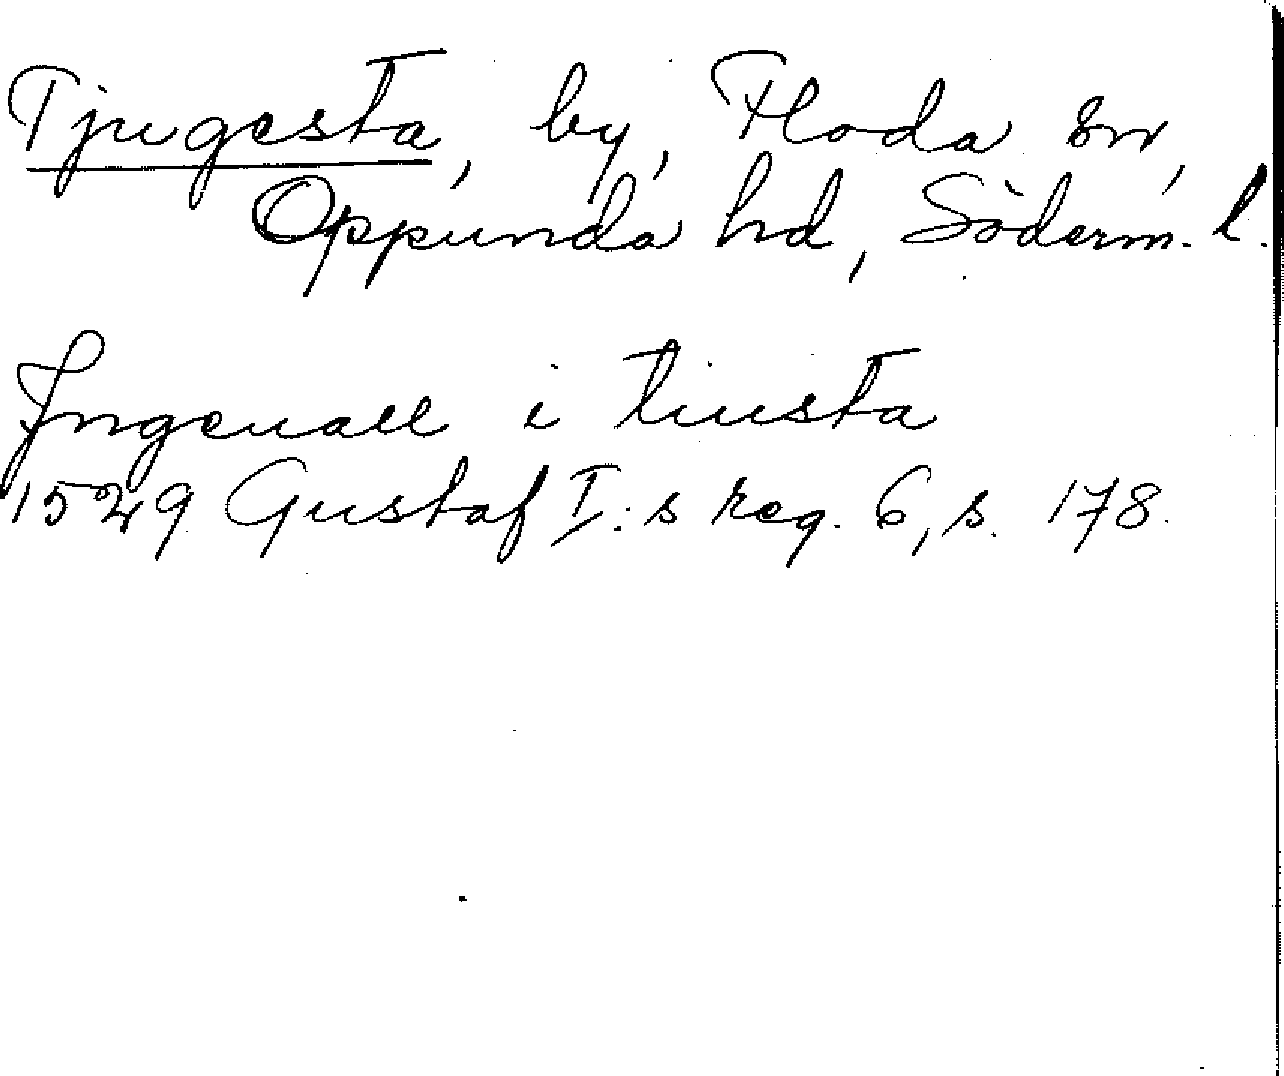 Tjugesta, by, Floda sn,
Oppunda hd, Söderm. l.
Ingeuall i tiusta
1529 Gustaf I:s reg. 6, s. 178.